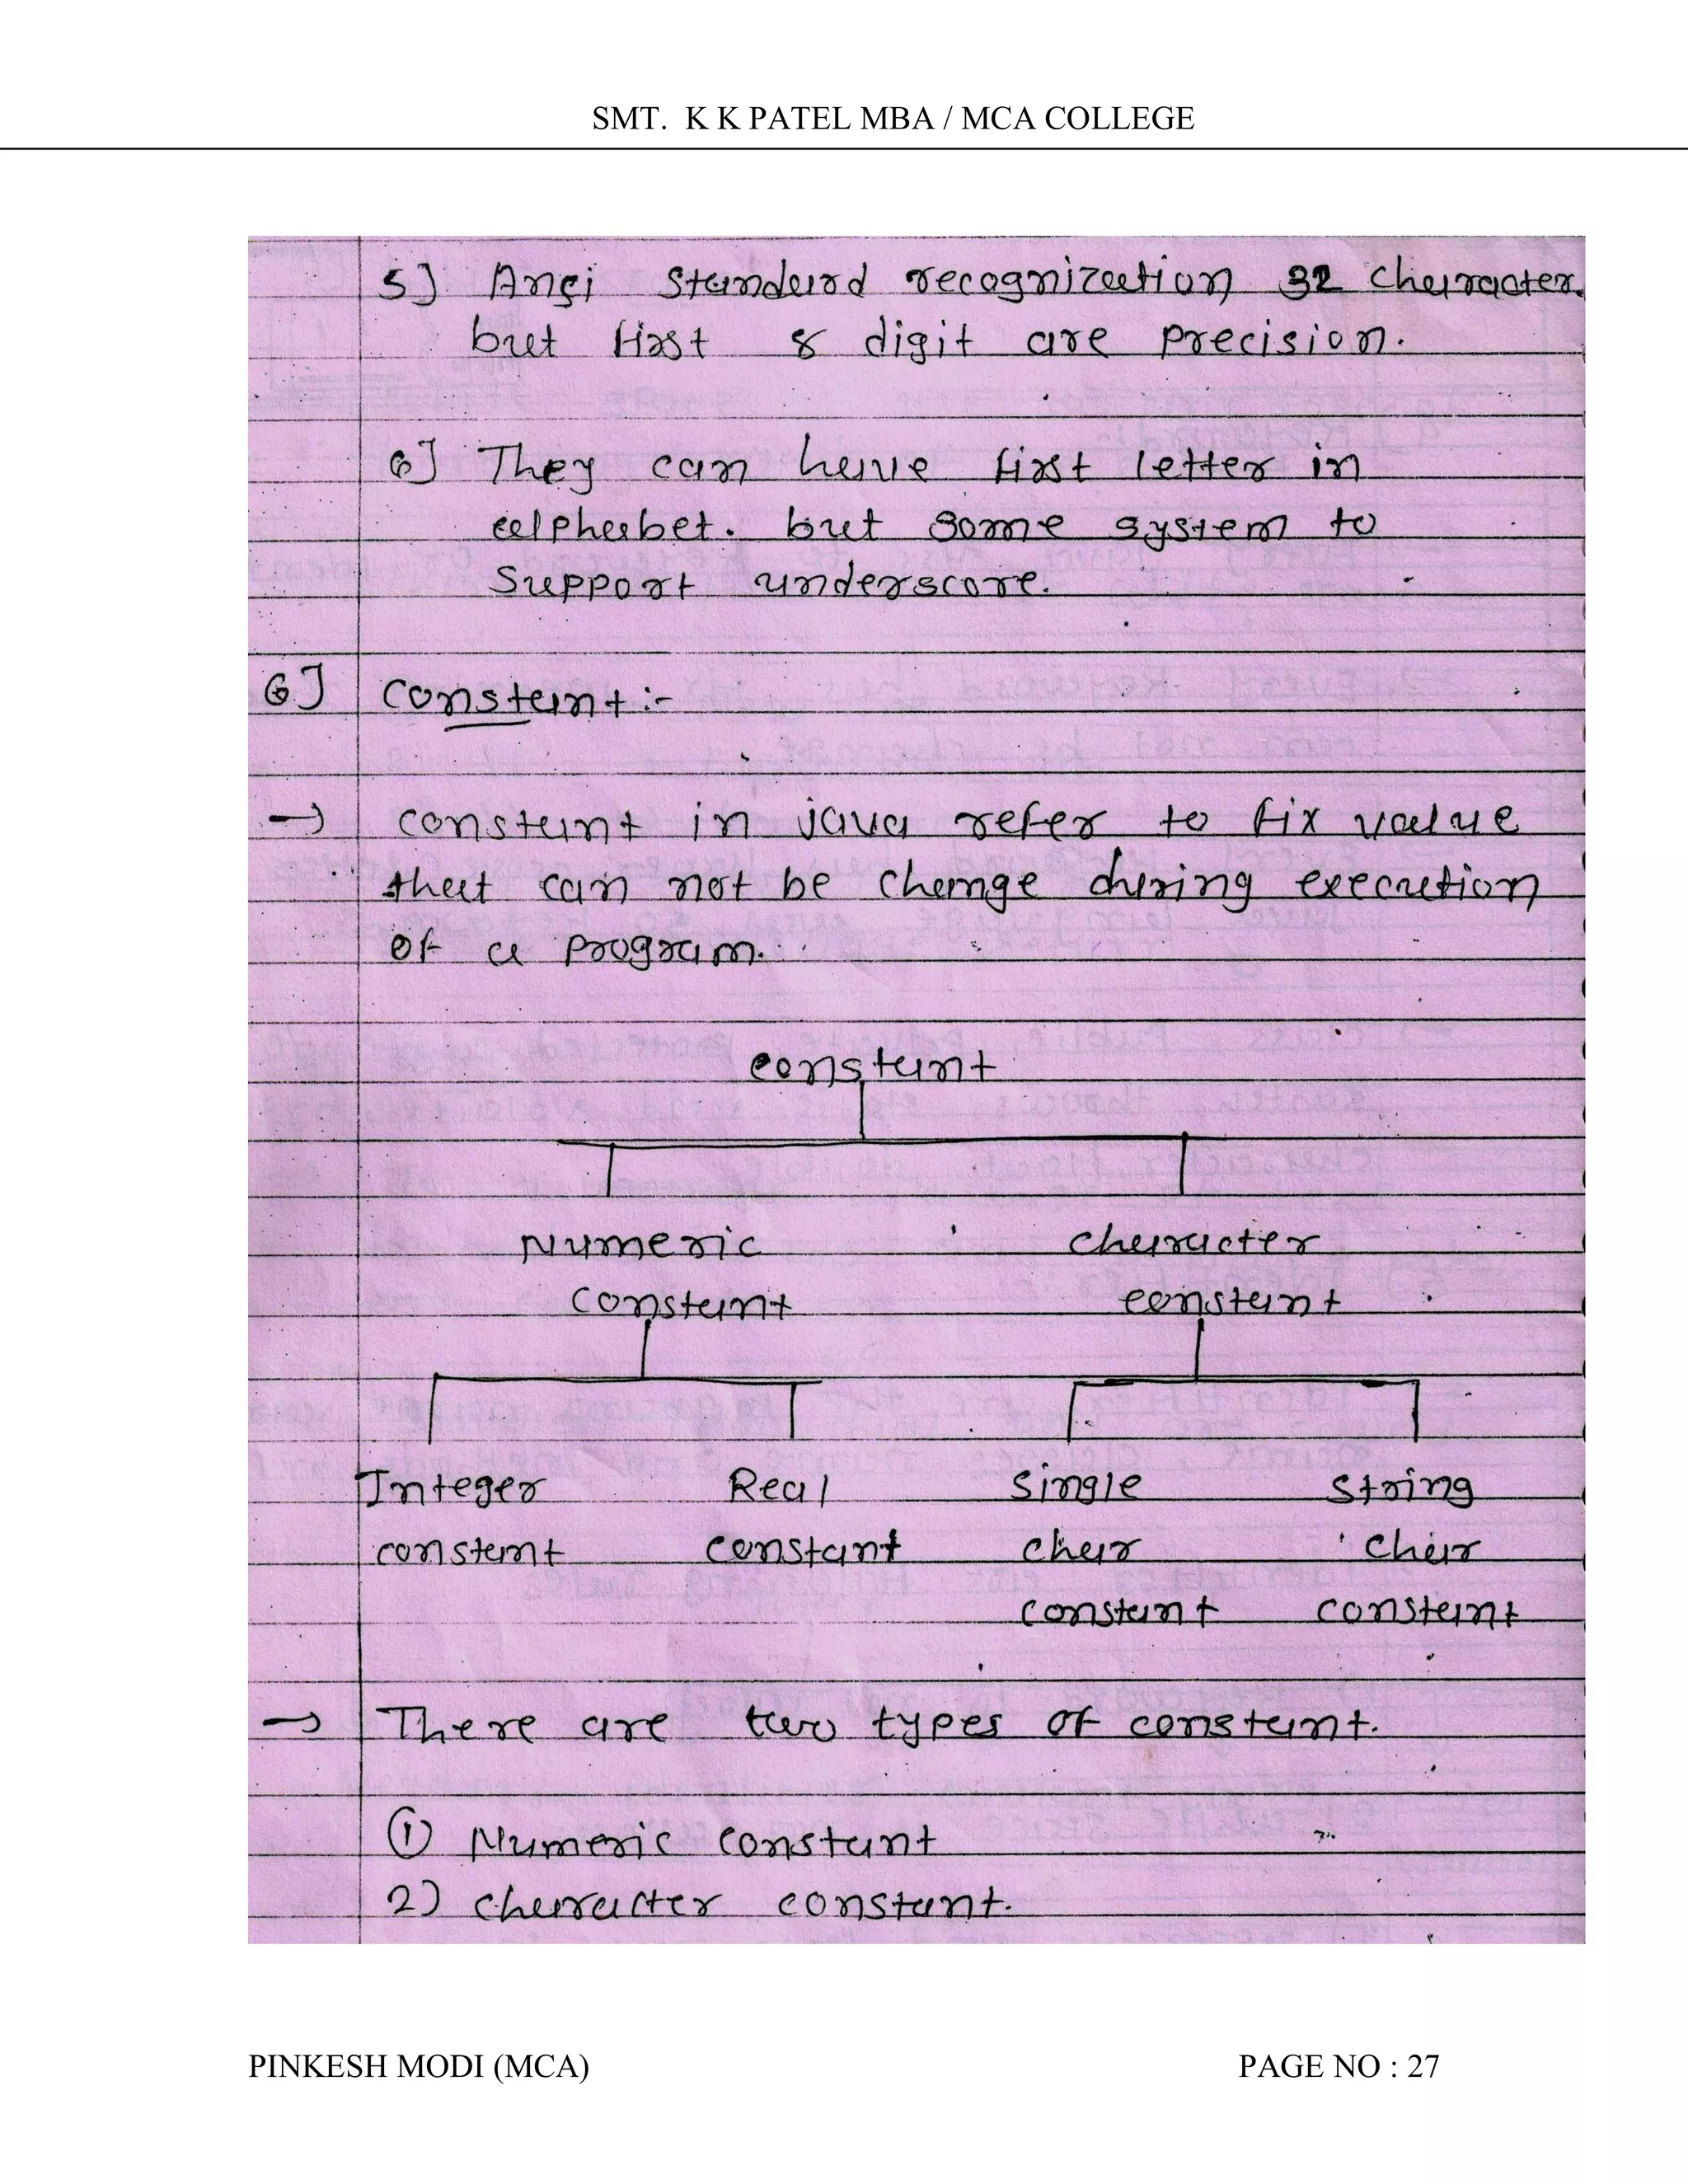 SMT. K K PATEL MBA / MCA COLLEGE
5] Ansi Standard recognization 32 character.
but first 8 digit are precision.
6] They can have first letter in
alphabet. but some system to
support underscore.
6] Constant :-
→ constant in java refer to fix value
that can not be change during execution
of a program.
constant
Numeric character
constant constant
Integer Real single string
constant constant char char
constant constant
→ There are two types of constant.
① Numeric constant
2) character constant.
PINKESH MODI (MCA) PAGE NO : 27